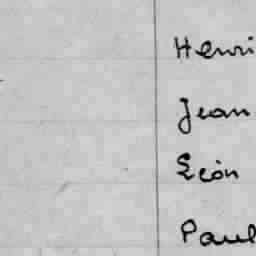 Henri
Jean
Léon
Paul